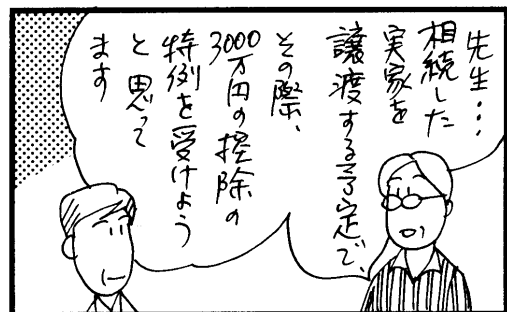 先生…
相続した
実家を
譲渡する予定で、
その際、
3000
万円の控除の
特例を受けよう
と思って
ます